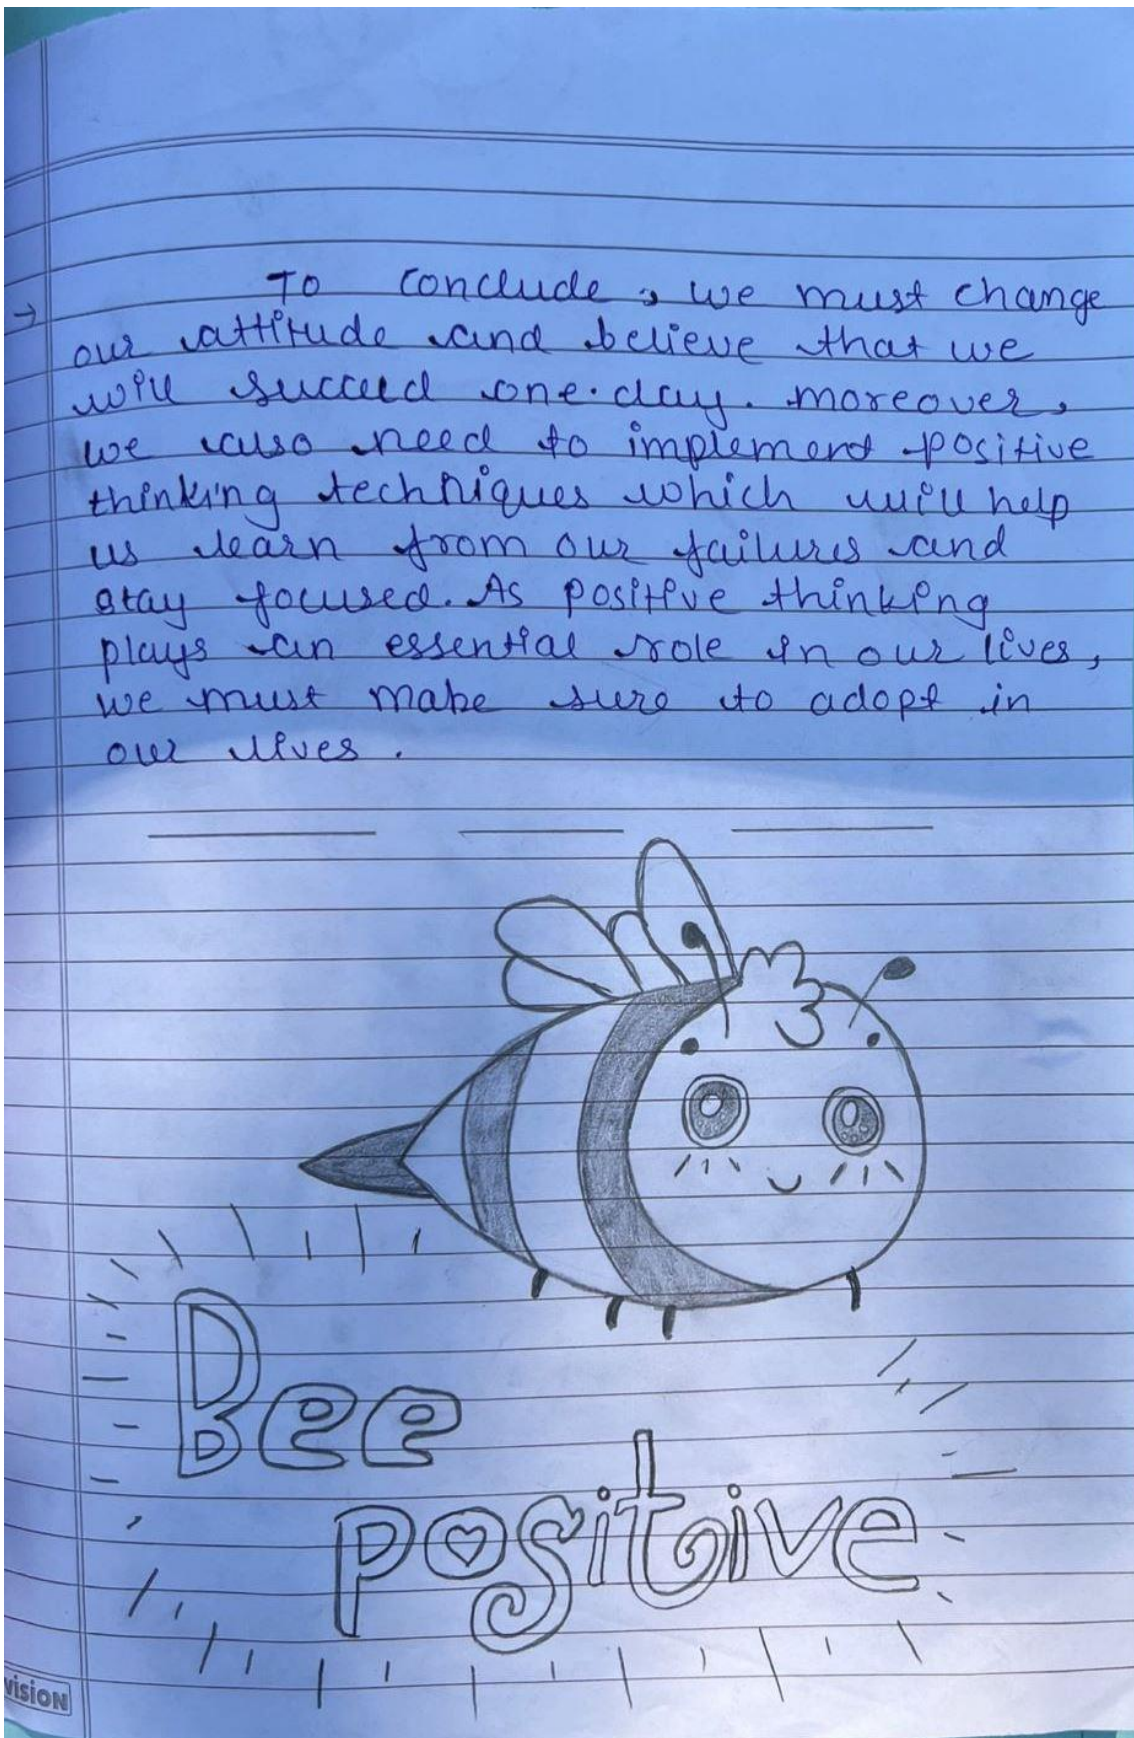 → To conclude, we must change
our attitude and believe that we
will succeed one day. moreover,
we also need to implement positive
thinking techniques which will help
us learn from our failures and
stay focused. As positive thinking
plays an essential role in our lives,
we must make sure to adopt in
our lives.
Bee
positive
vision